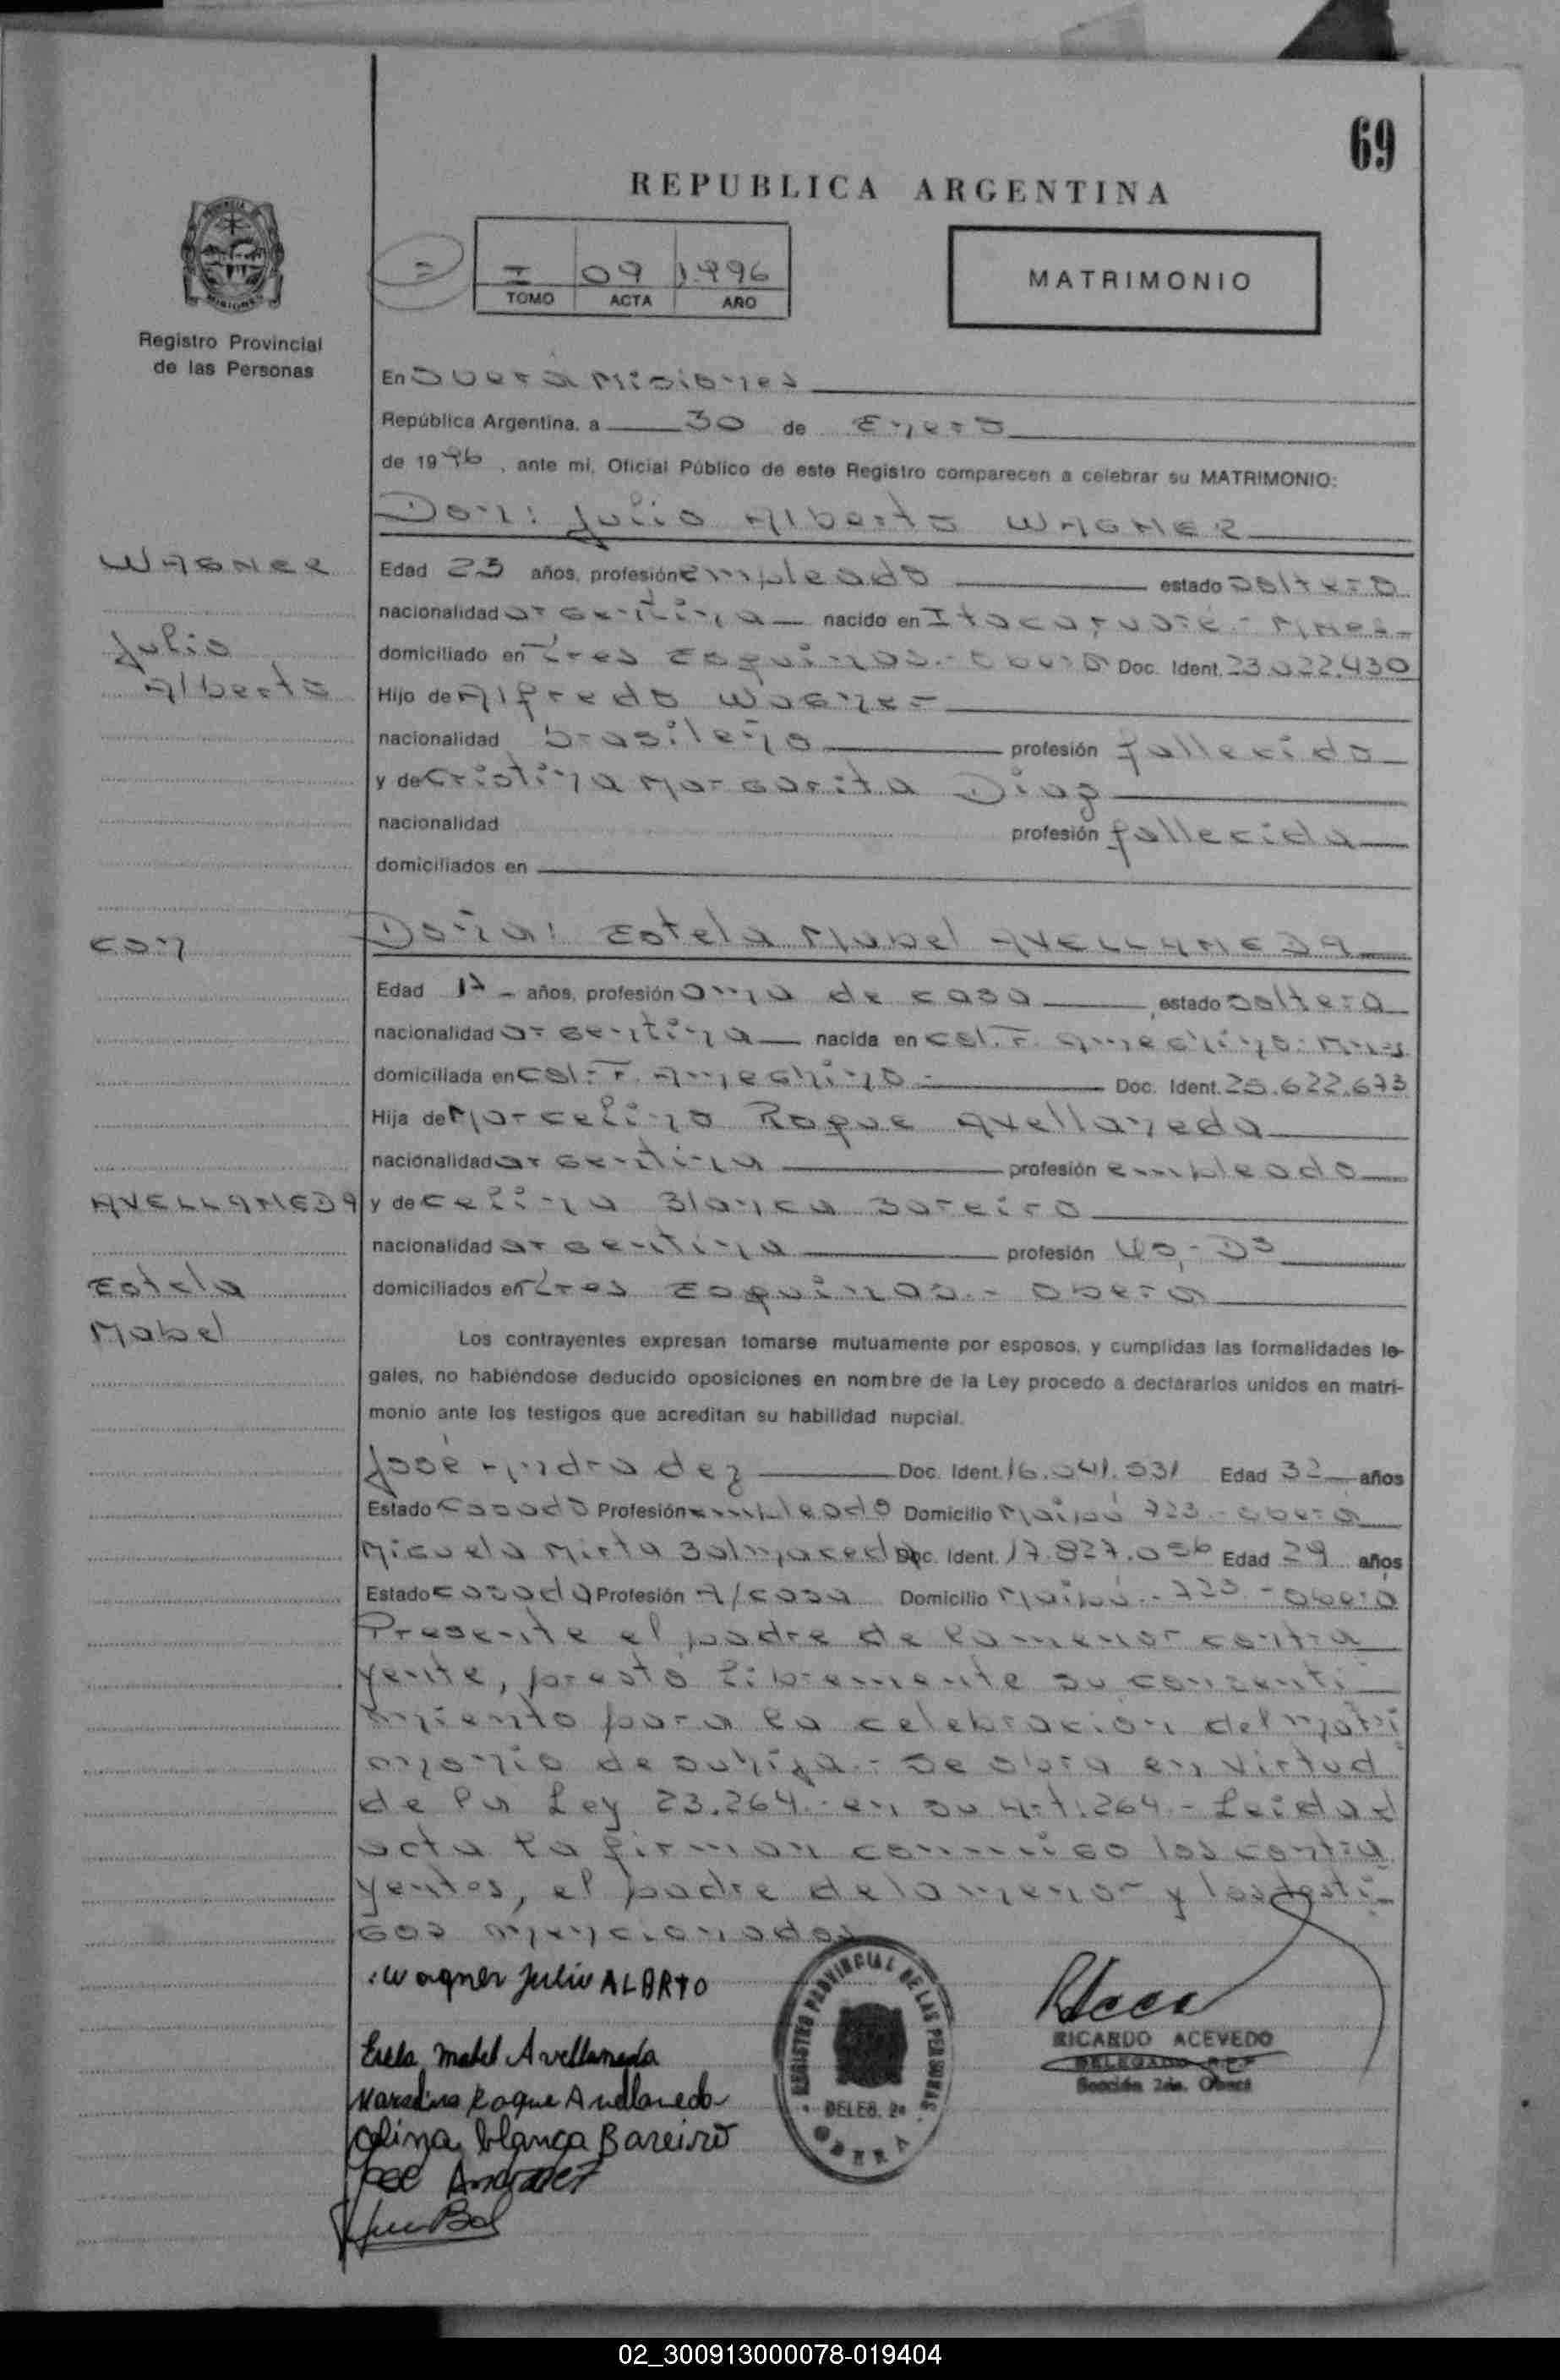 69
REPUBLICA ARGENTINA
I 09 1996
TOMO ACTA AÑO
MATRIMONIO
Registro Provincial
de las Personas
En Oberá Misiones
República Argentina, a 30 de Enero
de 1996, ante mi, Oficial Público de este Registro comparecen a celebrar su MATRIMONIO:
Don: Julio Alberto WAGNER
WAGNER
Edad 23 años, profesión empleado estado soltero
nacionalidad argentina nacido en Itacaruaré - Mnes-
Julio
domiciliado en Tres Esquinas.- Oberá Doc. Ident. 23.022.430
Alberto
Hijo de Alfredo Wagner
nacionalidad brasileño profesión fallecido
y de Cristina Margarita Diaz
nacionalidad profesión fallecida
domiciliados en
con
Doña: Estela Mabel AVELLANEDA
Edad 17 - años, profesión ama de casa estado soltera
nacionalidad argentina nacida en Col. F. Ameghino. Mnes
domiciliada en Col. F. Ameghino - Doc. Ident. 25.622.673
Hija de Marcelino Roque Avellaneda
nacionalidad argentina profesión empleado
AVELLANEDA
y de Celina Blanca Bareiro
nacionalidad argentina profesión
Estela
domiciliados en Tres Esquinas.- Oberá
Mabel
Los contrayentes expresan tomarse mutuamente por esposos, y cumplidas las formalidades le-
gales, no habiéndose deducido oposiciones en nombre de la Ley procedo a declararlos unidos en matri-
monio ante los testigos que acreditan su habilidad nupcial.
José Andradez Doc. Ident. 16.041.531 Edad 32 años
Estado casado Profesión empleado Domicilio Maipú 723.- Oberá
Miguela Mirta Balmaceda Doc. Ident. 17.827.056 Edad 29 años
Estado casada Profesión A/casa Domicilio Maipú.- 723.- Oberá
Presente el padre de la menor contra
yente, prestó libremente su consenti-
miento para la celebración del matri
monio de su hija.- Se obra en virtud
de la Ley 23.264.- en su Art. 264.- Leida el
acta la firman conmigo los contra
yentes, el padre de la menor y los testi-
gos mencionados
Wagner Julio ALBRTO
Estela Mabel Avellaneda
Marcelino Roque Avellaneda
Celina blanca Bareiro
José Andradez
REGISTRO PROVINCIAL DE LAS PERSONAS
DELEG. 2a
OBERA
RICARDO ACEVEDO
DELEGADO R.P.P
Sección 2da. Oberá
02_300913000078-019404